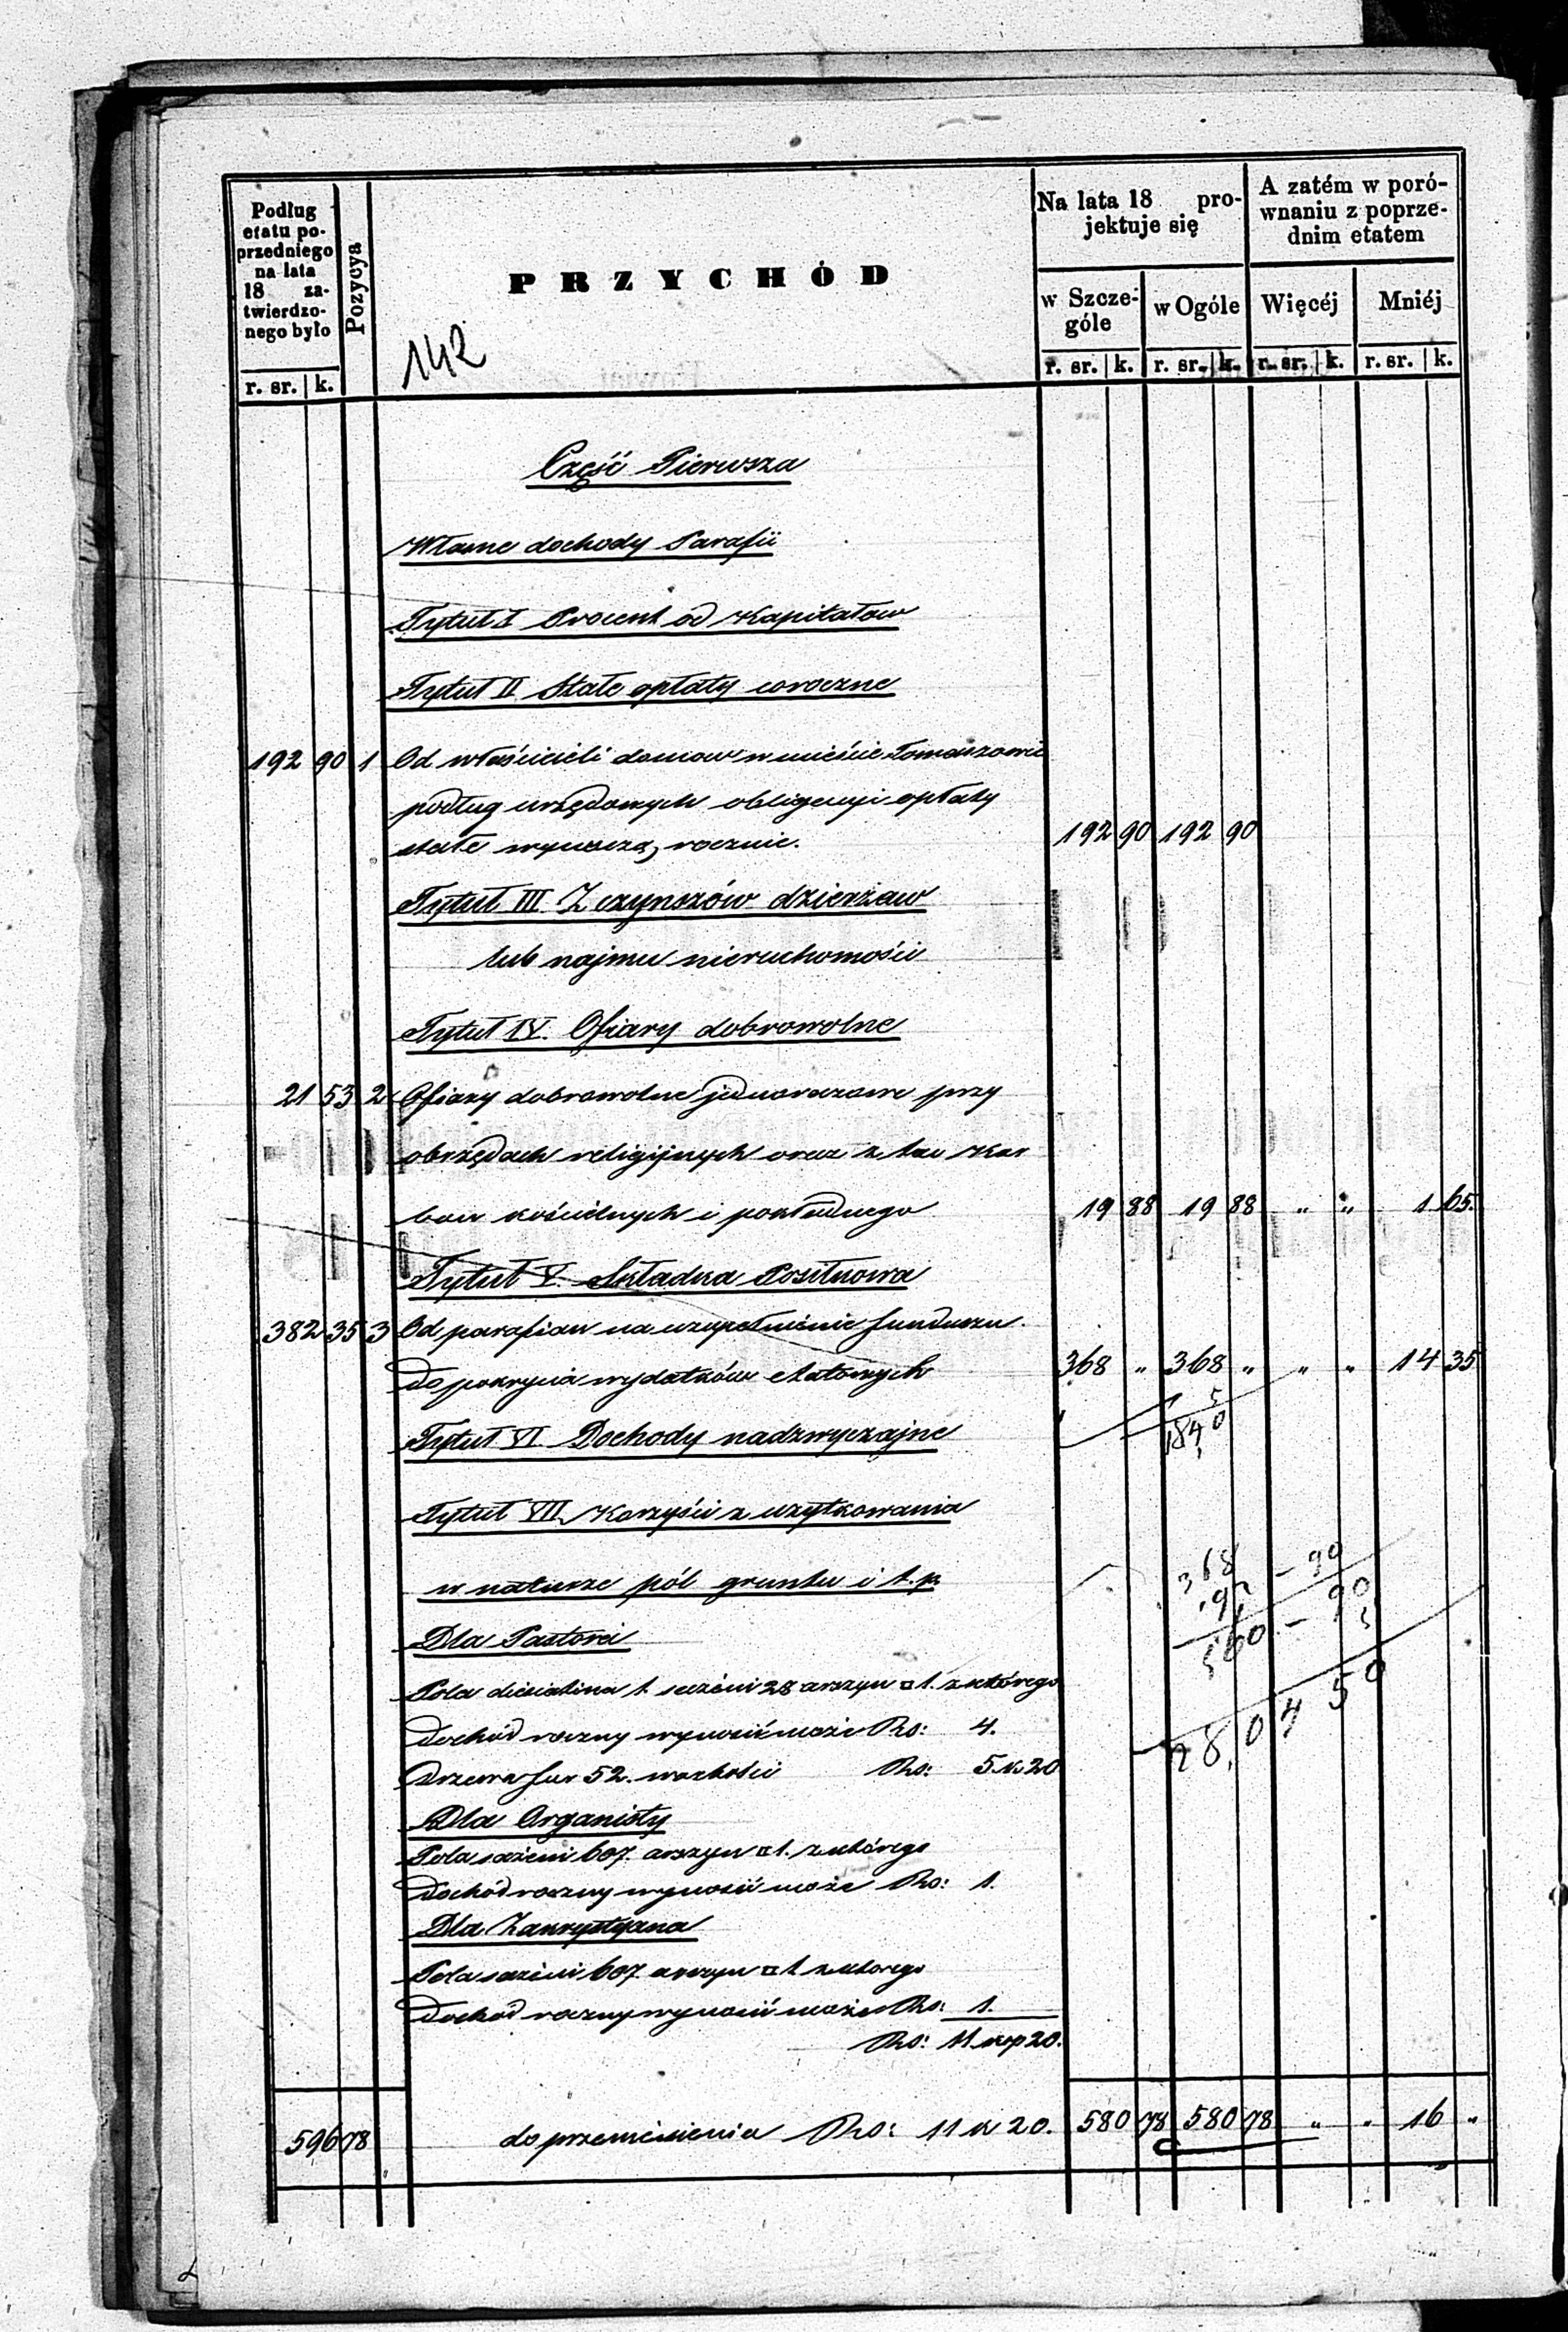 Podług etatu po-
przedniego
na lata
18 za-
twierdzo-
nego było
r. sr. k.
Pozycya
PRZYCHÓD
142
Na lata 18 pro-
jektuje się
w Szcze-
góle
w Ogóle
r. sr. k. r. sr. k.
A zatém w poró-
wnaniu z poprze-
dnim etatem
Więcéj Mniéj
r. sr. k. r. sr. k.
Część Pierwsza
Własne dochody Parafii
Tytuł I Procent od Kapitałow
Tytuł II Stałe opłaty coroczne
192 90 1 Od właścicieli domow w mieście Tomaszowie
podług urzędowych obligacyi opłaty
stałe wynoszą, rocznie. 192 90 192 90
Tytuł III Z czynszów dzierżaw
lub najmu nieruchomości
Tytuł IV. Ofiary dobrowolne
21 53 2 Ofiary dobrowolne jednorazowe przy
obrzędach religijnych oraz z tac Kar
bon kościelnych i pokładnego 19 88 19 88 " " 1 65.
Tytuł V. Składka Posiłkowa
382 35 3 Od parafian na uzupełnienie funduszu
do pokrycia wydatków etatowych 368 " 368 " " " 14 35
Tytuł VI Dochody nadzwyczajne
Tytuł VII Korzyści z użytkowania
w naturze pól gruntu i t.p.
368 - 90
560 - 90
Dla Pastora
Pola diesiatina 1. sążeni 28 arszyn □ 1. z którego
dochód roczny wynosić może Rs: 4.
Drzewa fur 52. wartości Rs: 5 k 20
28, 04 50
Dla Organisty
Pola sążeni 607. arszyn □ 1. z którego
dochód roczny wynosić może Rs: 1.
Dla Zakrystyana
Pola sążeni 607. arszyn □ 1 z ktorego
dochód roczny wynosić może Rs: 1.
Rs: 11 kop 20.
596 78 do przeniesienia Rs: 11 k 20. 580 78 580 78 " " 16 "